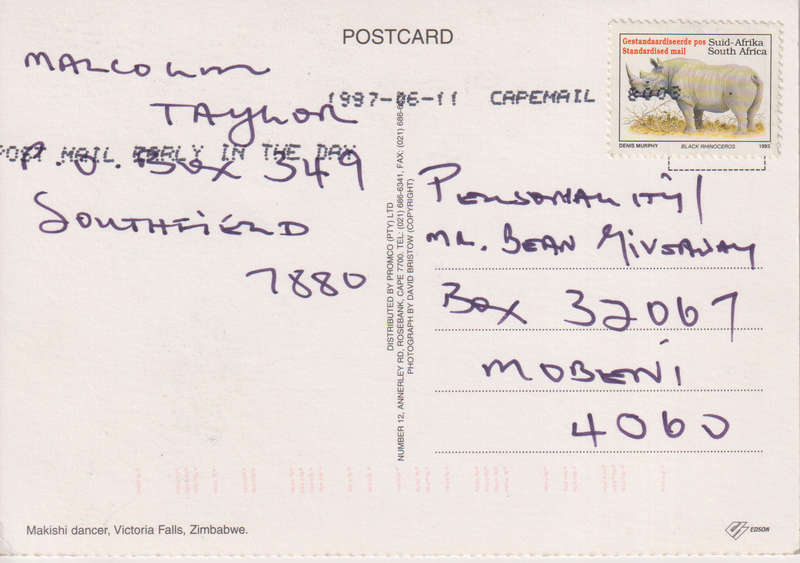 POSTCARD
Malcolm
Taylor
P.O. Box 349
Southfield
7880
1997-06-11 CAPEMAIL 8000
POST MAIL EARLY IN THE DAY
Gestandaardiseerde pos
Standardised mail
Suid-Afrika
South Africa
DENIS MURPHY
BLACK RHINOCEROS
1993
Personality/
Mr. Bean Giveaway
Box 32067
Mobeni
4060
DISTRIBUTED BY PROMCO (PTY) LTD
NUMBER 12, ANNERLEY RD, ROSEBANK, CAPE 7700. TEL: (021) 686-6341, FAX: (021) 686-
PHOTOGRAPH BY DAVID BRISTOW (COPYRIGHT)
Makishi dancer, Victoria Falls, Zimbabwe.
EDSON